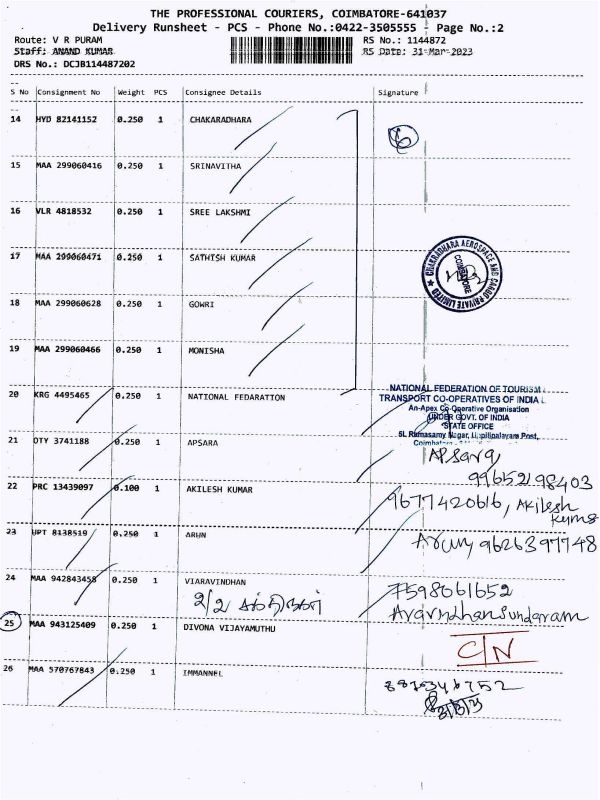 THE PROFESSIONAL COURIERS, COIMBATORE-641037
Delivery Runsheet - PCS - Phone No.:0422-3505555 - Page No.:2
Route: V R PURAM RS No.: 1144872
Staff: ANAND KUMAR RS Date: 31-Mar-2023
DRS No.: DCJB114487202
S No Consignment No Weight PCS Consignee Details Signature
14 HYD 82141152 0.250 1 CHAKARADHARA
6
15 MAA 299060416 0.250 1 SRINAVITHA
16 VLR 4818532 0.250 1 SREE LAKSHMI
17 MAA 299060471 0.250 1 SATHISH KUMAR
CHAKRADHARA AEROSPACE AND CARGO PRIVATE LIMITED
COIMBATORE
18 MAA 299060628 0.250 1 GOWRI
19 MAA 299060466 0.250 1 MONISHA
20 KRG 4495465 0.250 1 NATIONAL FEDARATION
NATIONAL FEDERATION OF TOURISM
TRANSPORT CO-OPERATIVES OF INDIA L
An-Apex Co-Operative Organisation
UNDER GOVT. OF INDIA
STATE OFFICE
5L Ramasamy Nagar, Uppilipalayam Post,
21 OTY 3741188 0.250 1 APSARA
Apsara
99652198403
22 PRC 13439097 0.100 1 AKILESH KUMAR
9677420616, Akilesh
Kumar
23 UPT 8138519 0.250 1 ARUN
Arun 9626397748
24 MAA 942843458 0.250 1 VIARAVINDHAN
2/2
7598061652
Aravindhan Sundaram
25 MAA 943125409 0.250 1 DIVONA VIJAYAMUTHU
C/N
26 MAA 570767843 0.250 1 IMMANNEL